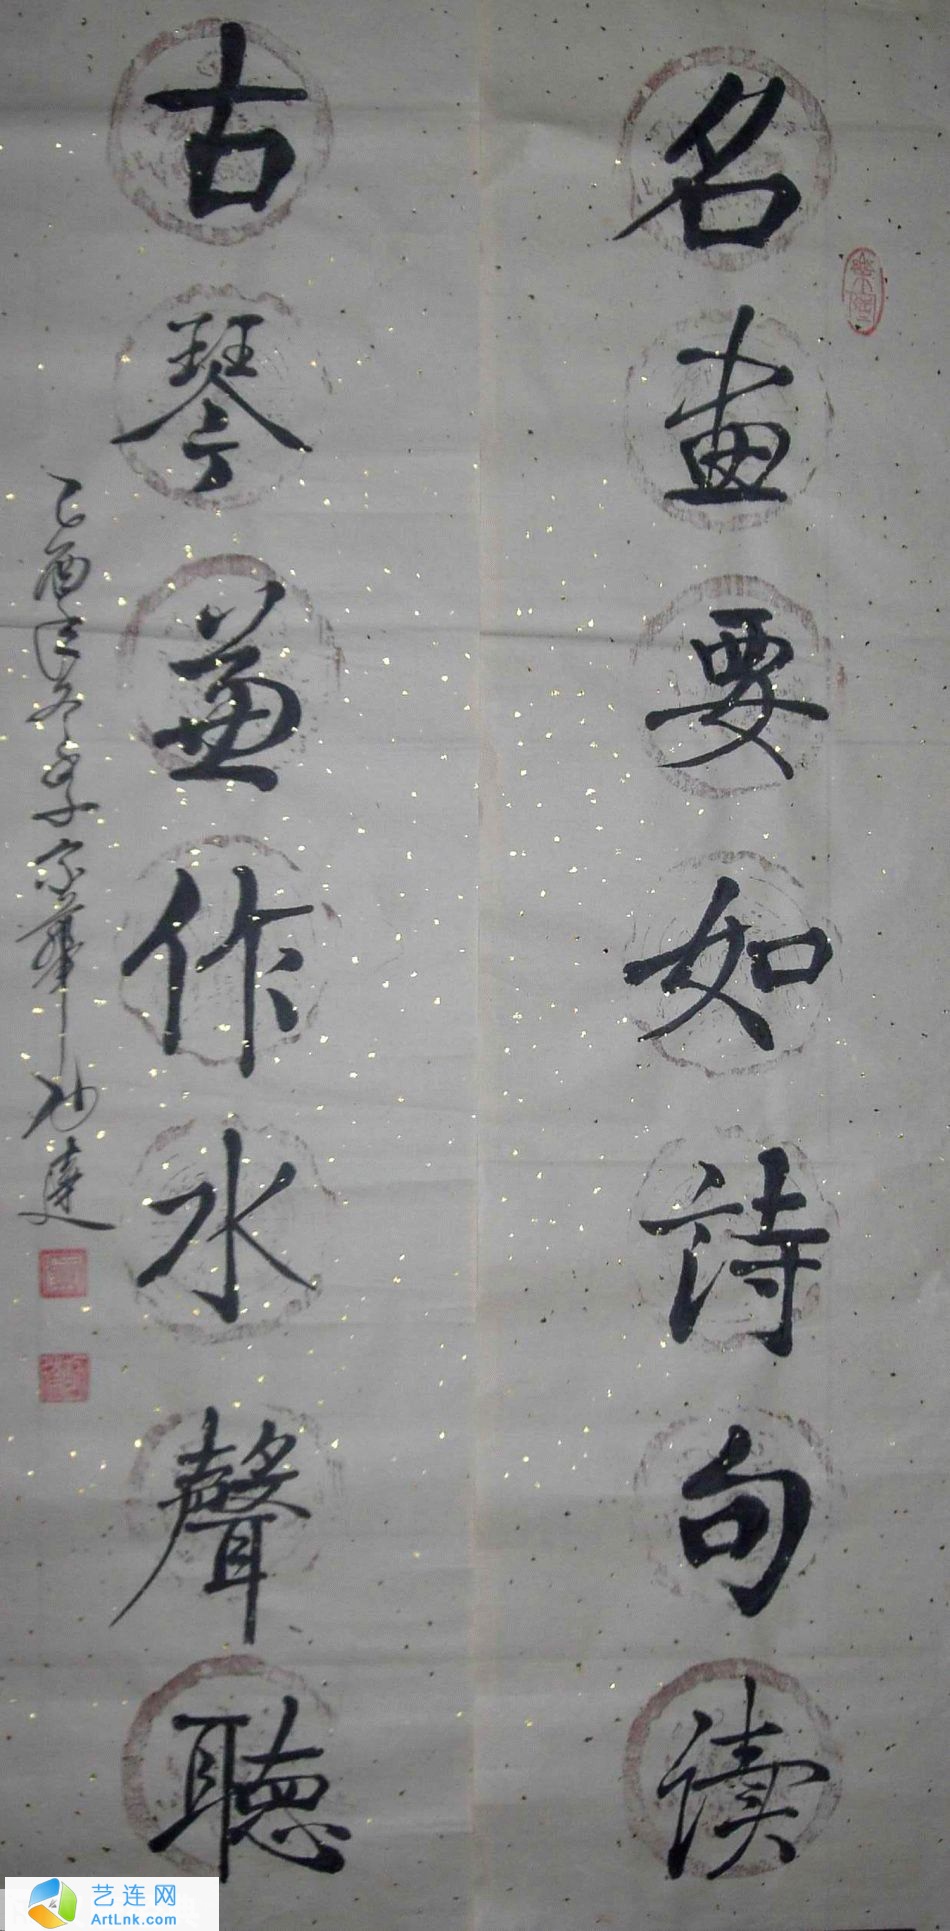 名畫要如詩句读
古琴蒹作水聲聽
乙酉年冬
艺连网
ArtLnk.com